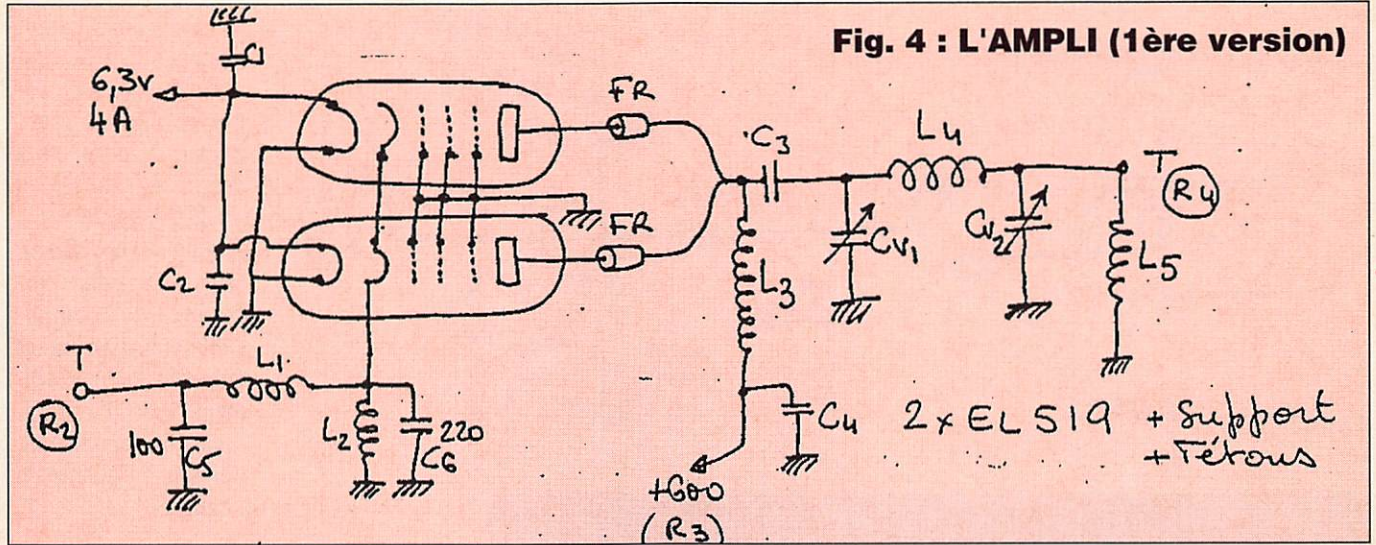 Fig. 4 : L'AMPLI (1ère version)
C1
6,3v
4A
FR
C3
L4
T
R4
CV1
CV2
L5
FR
L3
C2
T
L1
R2
100
C5
L2
220
C6
C4
2 x EL 519 + Support
+ Tétons
+600
(R3)